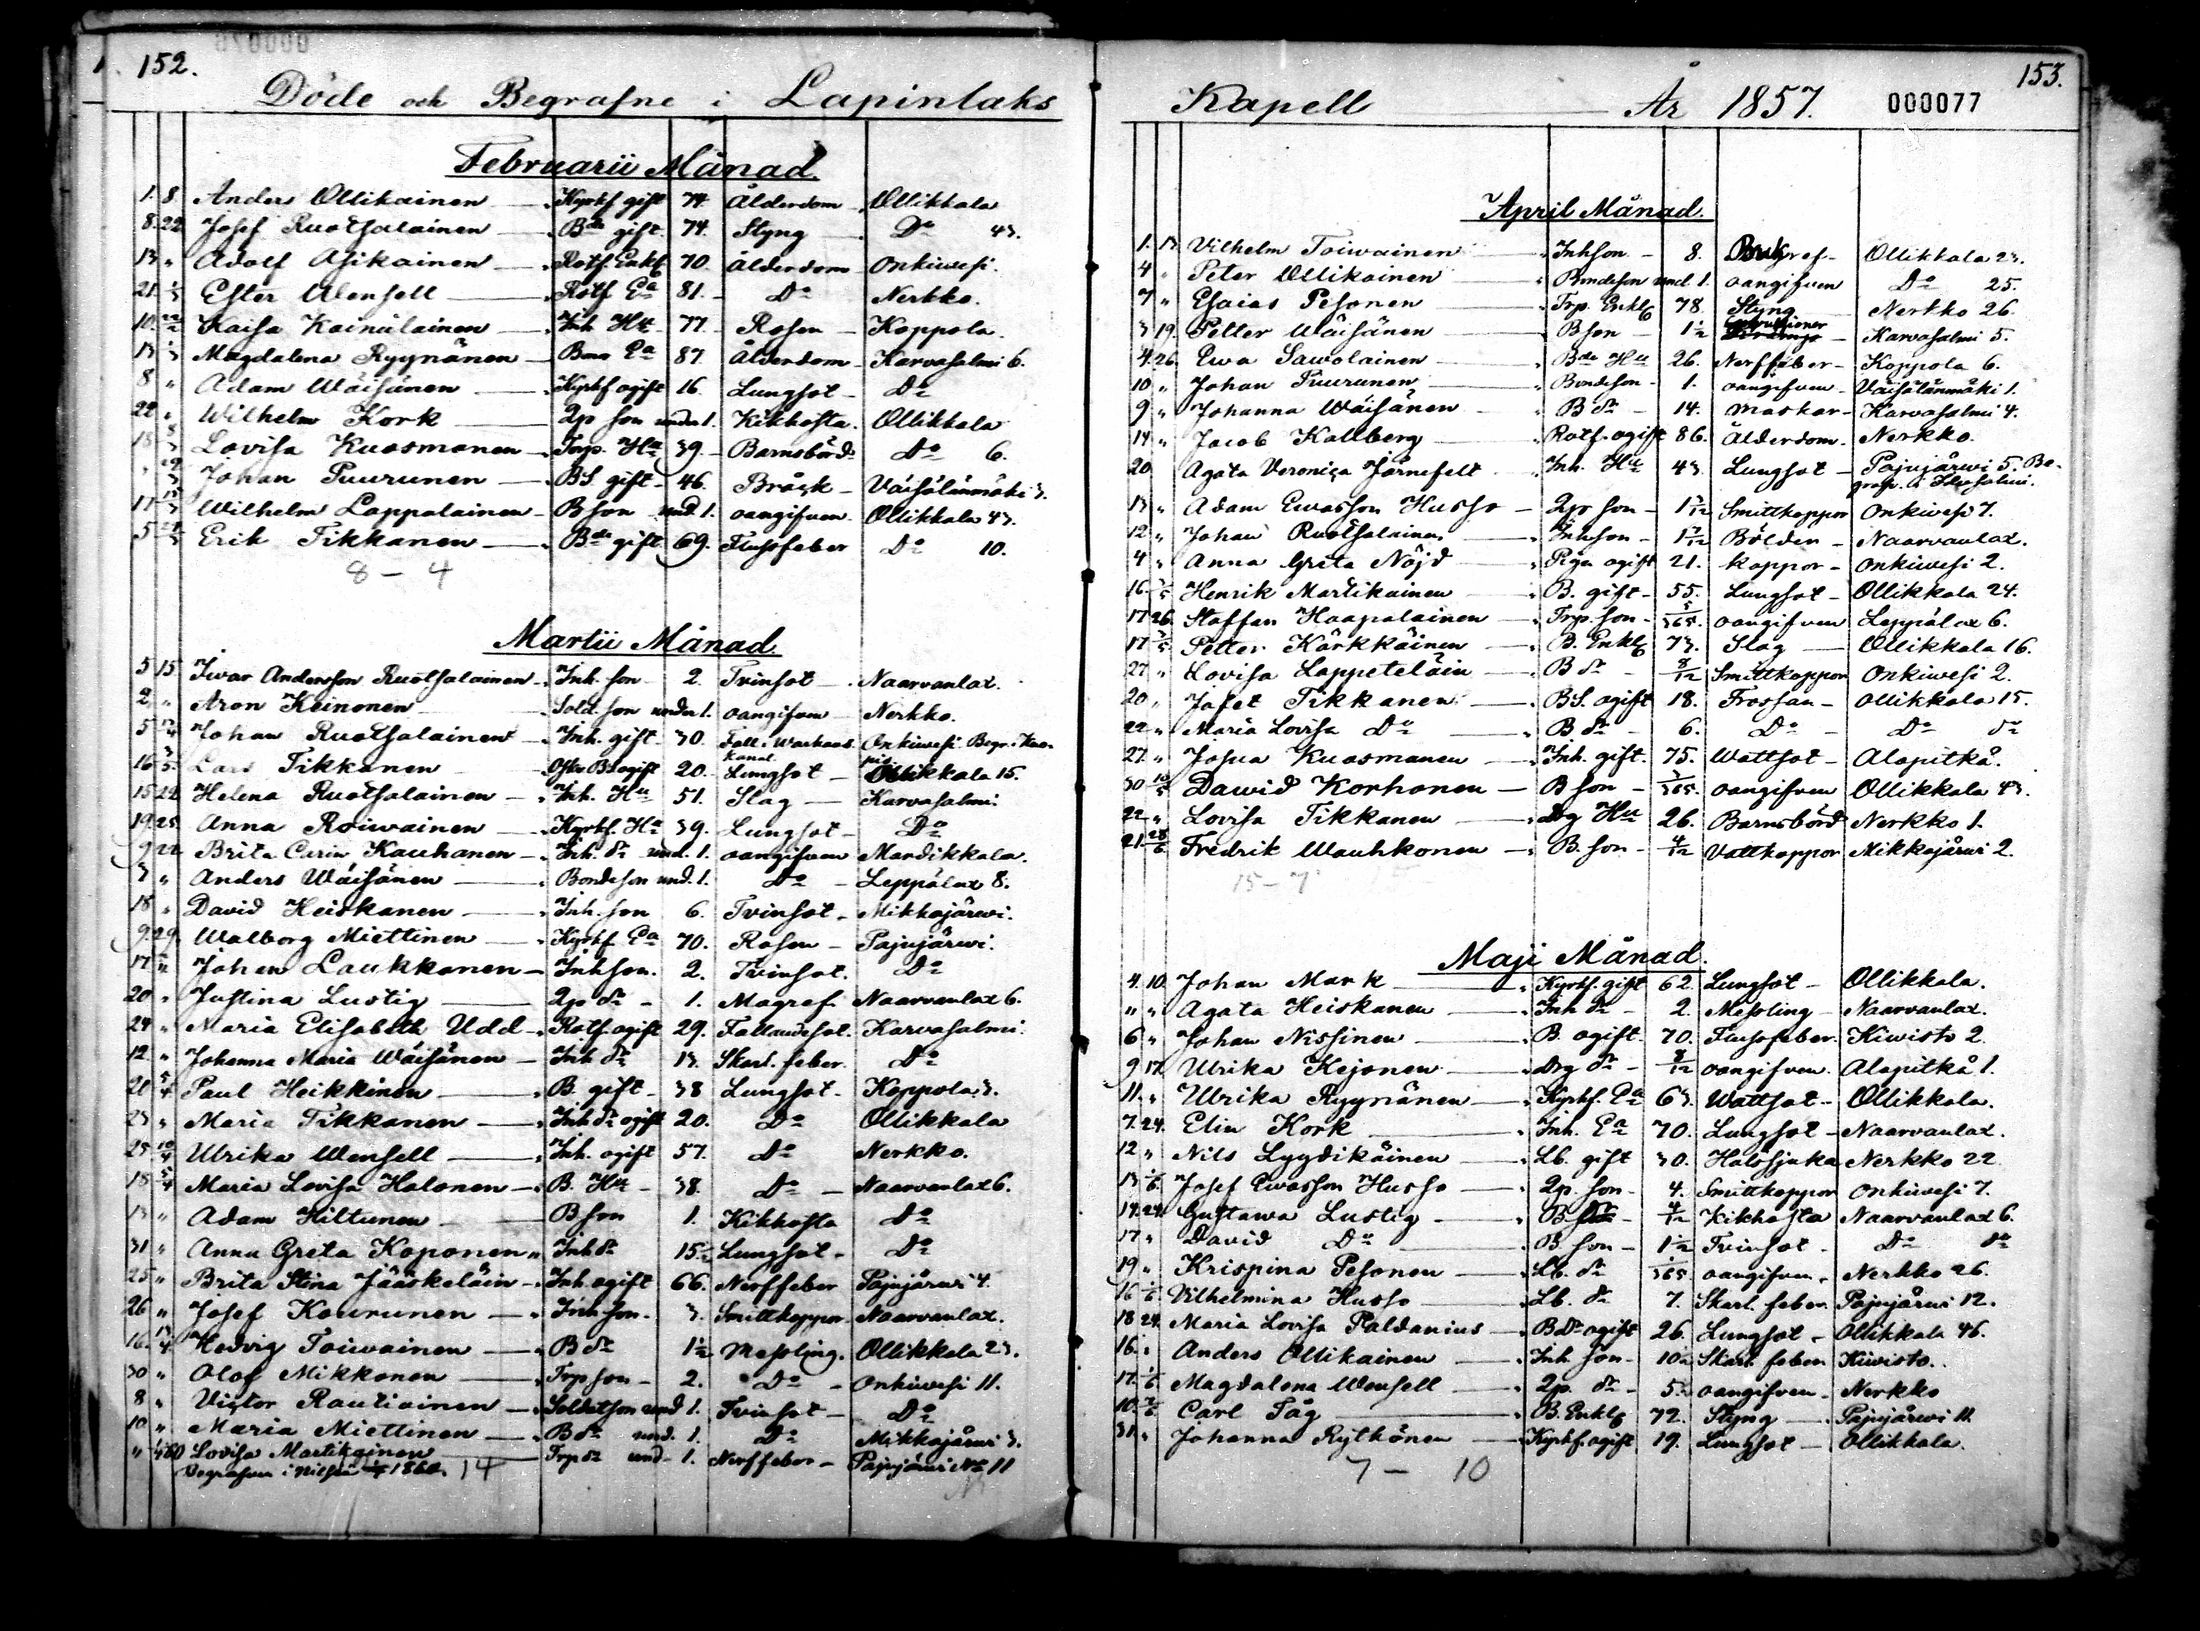 152.
Döde och Begrafne i Lapinlaks
Februarii Månad.
1. 8 Anders Ollikainen Kyrkf gift 74. Ålderdom Ollikkala
8. 22 Josef Ruotsalainen Bde gift 74. Styng Do 43.
13 " Adolf Asikainen Rotf. Enkl 70. Ålderdom Onkiwesi.
21 1/3 Ester Wensell Rotf Ea 81. Do Nerkko.
10. 22/2 Kaisa Kainulainen Inh Hu 77. Rosen Koppola.
13 1/3 Magdalena Ryynänen Bona Ea 87. Ålderdom Karvasalmi 6.
8 " Adam Wäisänen Kyrkf ogift 16. Lungsot Do
22 " Wilhelm Kork 2p son under 1. Kikhosta Ollikkala
18 8/3 Lovisa Kuosmanen Trp. Ha 39. Barnsbörd Do 6.
" 29/3 Johan Puurunen BS. gift 46. Bråck Väisälänmäki 3.
17 15/3 Wilhelm Lappalainen Bson und 1. oangifven Ollikkala 43.
5 29/3 Erik Tikkanen Bde gift 69. Flussfeber Do 10.
8 – 4
Martii Månad
5 15 Iwar Andersson Ruotsalainen Inh. son 2. Tvinsot Naarvanlax.
2 " Aron Keinonen Sold. son under 1. oangifven Nerkko.
5 12/4 Johan Ruotsalainen Inh. gift 30. Fall i Warkaus Onkiwesi Begr. i Kuo-
kanal pio
16 3/5 Lars Tikkanen BS ogift 20. Lungsot Ollikkala 15.
15 22 Helena Ruotsalainen Inh. Hu 51. Slag Karvasalmi
19 25 Anna Roiwainen Kyrkf. Ha 39. Lungsot Do
9 22 Brita Carin Kauhanen Inh. dr und. 1. oangifven Mandikkala.
3 " Anders Wäisänen Bondeson und. 1. Do Leppälax 8.
18 " David Heiskanen Inh. son 6. Tvinsot Mikkajärwi.
9 29 Walborg Miettinen Kyrkf Ea 70. Rosen Pajujärwi.
17 " Johan Laukkanen Inhson. 2. Tvinsot. Do
20 " Justina Lustig 2p dr 1. Magref Naarvanlax 6.
24 " Maria Elisabeth Udd Rotf. ogift 29. Fallandesot. Karvasalmi
12 " Johanna Maria Wäisänen Inh dr 13. Skarl. feber. Do
21 5/4 Paul Heikkinen B. gift 38 Lungsot Koppola 3.
23 " Maria Tikkanen Inh dr ogift 20. Do Ollikkala
25 10/4 Ulrika Wensell Inh. ogift 57. Do Nerkko.
18 5/4 Maria Lovisa Halonen B. Hu 38. Do Naarvanlax 6.
13 " Adam Hiltunen Bson 1. Kikhosta Do
31 " Anna Greta Koponen Inh dr 15 1/2 Lungsot Do
25 " Brita Stina Jääskeläin Inh. ogift 66. Nerffeber Pajujärwi 4.
26 " Josef Kourunen Inh son. 3. Smittkoppor Naarvanlax.
16. 13/4 Hedvig Toiwainen B dr 1 1/2 Messling. Ollikkala 23.
30 " Olof Mikkonen Trp son 2. Do Onkiwesi 11.
8 " Victor Rautiainen Soldatson und 1. Tvinsot Do
10 " Maria Miettinen B dr und. 1. Do Mikkajärwi 3.
" Lovisa Martikainen Trp dr und 1. Nerffeber Pajujärwi No 11
Begrafven i Nilsiä 1860. 14
153.
Kapell År 1857. 000077
April Månad.
1. 13 Vilhelm Toiwainen Inhson 8. Ollikkala 23.
4 " Peter Ollikainen Bondeson und. 1. oangifven Do 25.
7 " Esaias Pesonen Trp. Enkl 78. Styng Nerkko 26.
3 19. Petter Wäisänen Bson 1 1/2 Karvasalmi 5.
4. 26 Ewa Sawolainen Bde Hu 26. Nerffeber Koppola 6.
10 " Johan Puurunen Bondeson 1. oangifven Väisälänmäki 1.
9 " Johanna Wäisänen B dr 14. Maskar Karvasalmi 4.
14 " Jacob Kallberg Rotf. ogift 86. Ålderdom. Nerkko.
20 Agata Veronica Järnefelt Inh. Hu 43. Lungsot Pajujärwi 5. Be-
graf. i Idensalmi.
13 " Adam Ewasson Husso 2p son 1 1/12 Smittkoppor Onkiwesi 7.
12 " Johan Ruotsalainen Inhson 1 7/12 Bölder Naarvanlax.
4 " Anna Greta Nöjd Piga ogift 21. koppor Onkiwesi 2.
16 3/5 Henrik Martikainen B. gift 55. Lungsot Ollikkala 24.
17 26. Staffan Haapalainen Trp. son 5/365. oangifven Leppälax 6.
17 3/5 Petter Kärkkäinen B. Enkl 73. Slag Ollikkala 16.
27 " Lovisa Lappeteläin B dr 8/12 Smittkoppor Onkiwesi 2.
20 " Jafet Tikkanen BS. ogift 18. Frossan Ollikkala 15.
22 " Maria Lovisa Do B dr 6. Do Do do
27. " Josua Kuosmanen Inh. gift. 75. Wattsot Alapitkä.
30 10/5 Dawid Korhonen B son 3/365. oangifven Ollikkala 43.
22 " Lovisa Tikkanen Drg Hu 26. Barnsbörd Nerkko 1.
21 28/6 Fredrik Wauhkonen B. son 4/12 Vattkoppor Mikkajärwi 2.
15 – 7
Maji Månad.
4. 10. Johan Mark Kyrkf. gift 62. Lungsot Ollikkala.
" " Agata Heiskanen Inh dr 2. Messling Naarvanlax.
6 " Johan Nissinen B. ogift. 70. Flussfeber. Kiwistö 2.
9 17. Ulrika Kejonen Drg dr 8/12 oangifven. Alapitkä 1.
11. " Ulrika Ryynänen Kyrkf. Ea 63. Wattsot Ollikkala.
7. 24. Elin Kork Inh. Ea 70. Lungsot Naarvanlax.
12 " Nils Lyydikäinen Lb. gift 30. Halssjuka Nerkko 22
13 1/6. Josef Ewasson Husso 2p. son 4. Smittkoppor Onkiwesi 7.
14. 24. Gustawa Lustig B. dr 4/12 Kikhosta Naarvanlax 6.
17 " David Do B son 1 1/2 Tvinsot Do do
19 " Krispina Pesonen Lb. dr 1/365 oangifven. Nerkko 26.
16 1/6 Vilhelmina Husso Lb. dr 7. Skarl. feber. Pajujärwi 12.
18 24. Maria Lovisa Paldanius B Dr ogift 26. Lungsot Ollikkala 46.
16. " Anders Ollikainen Inh son 10 1/2 Skarl. feber Kiwistö.
17. 1/6. Magdalena Wensell 2p. dr 5 1/2 oangifven Nerkko
10. 7/6 Carl Tåg B. Enkl 72. Styng Pajujärwi 11.
31. " Johanna Rytkönen Kyrkf. ogift 19. Lungsot Ollikkala.
7 – 10